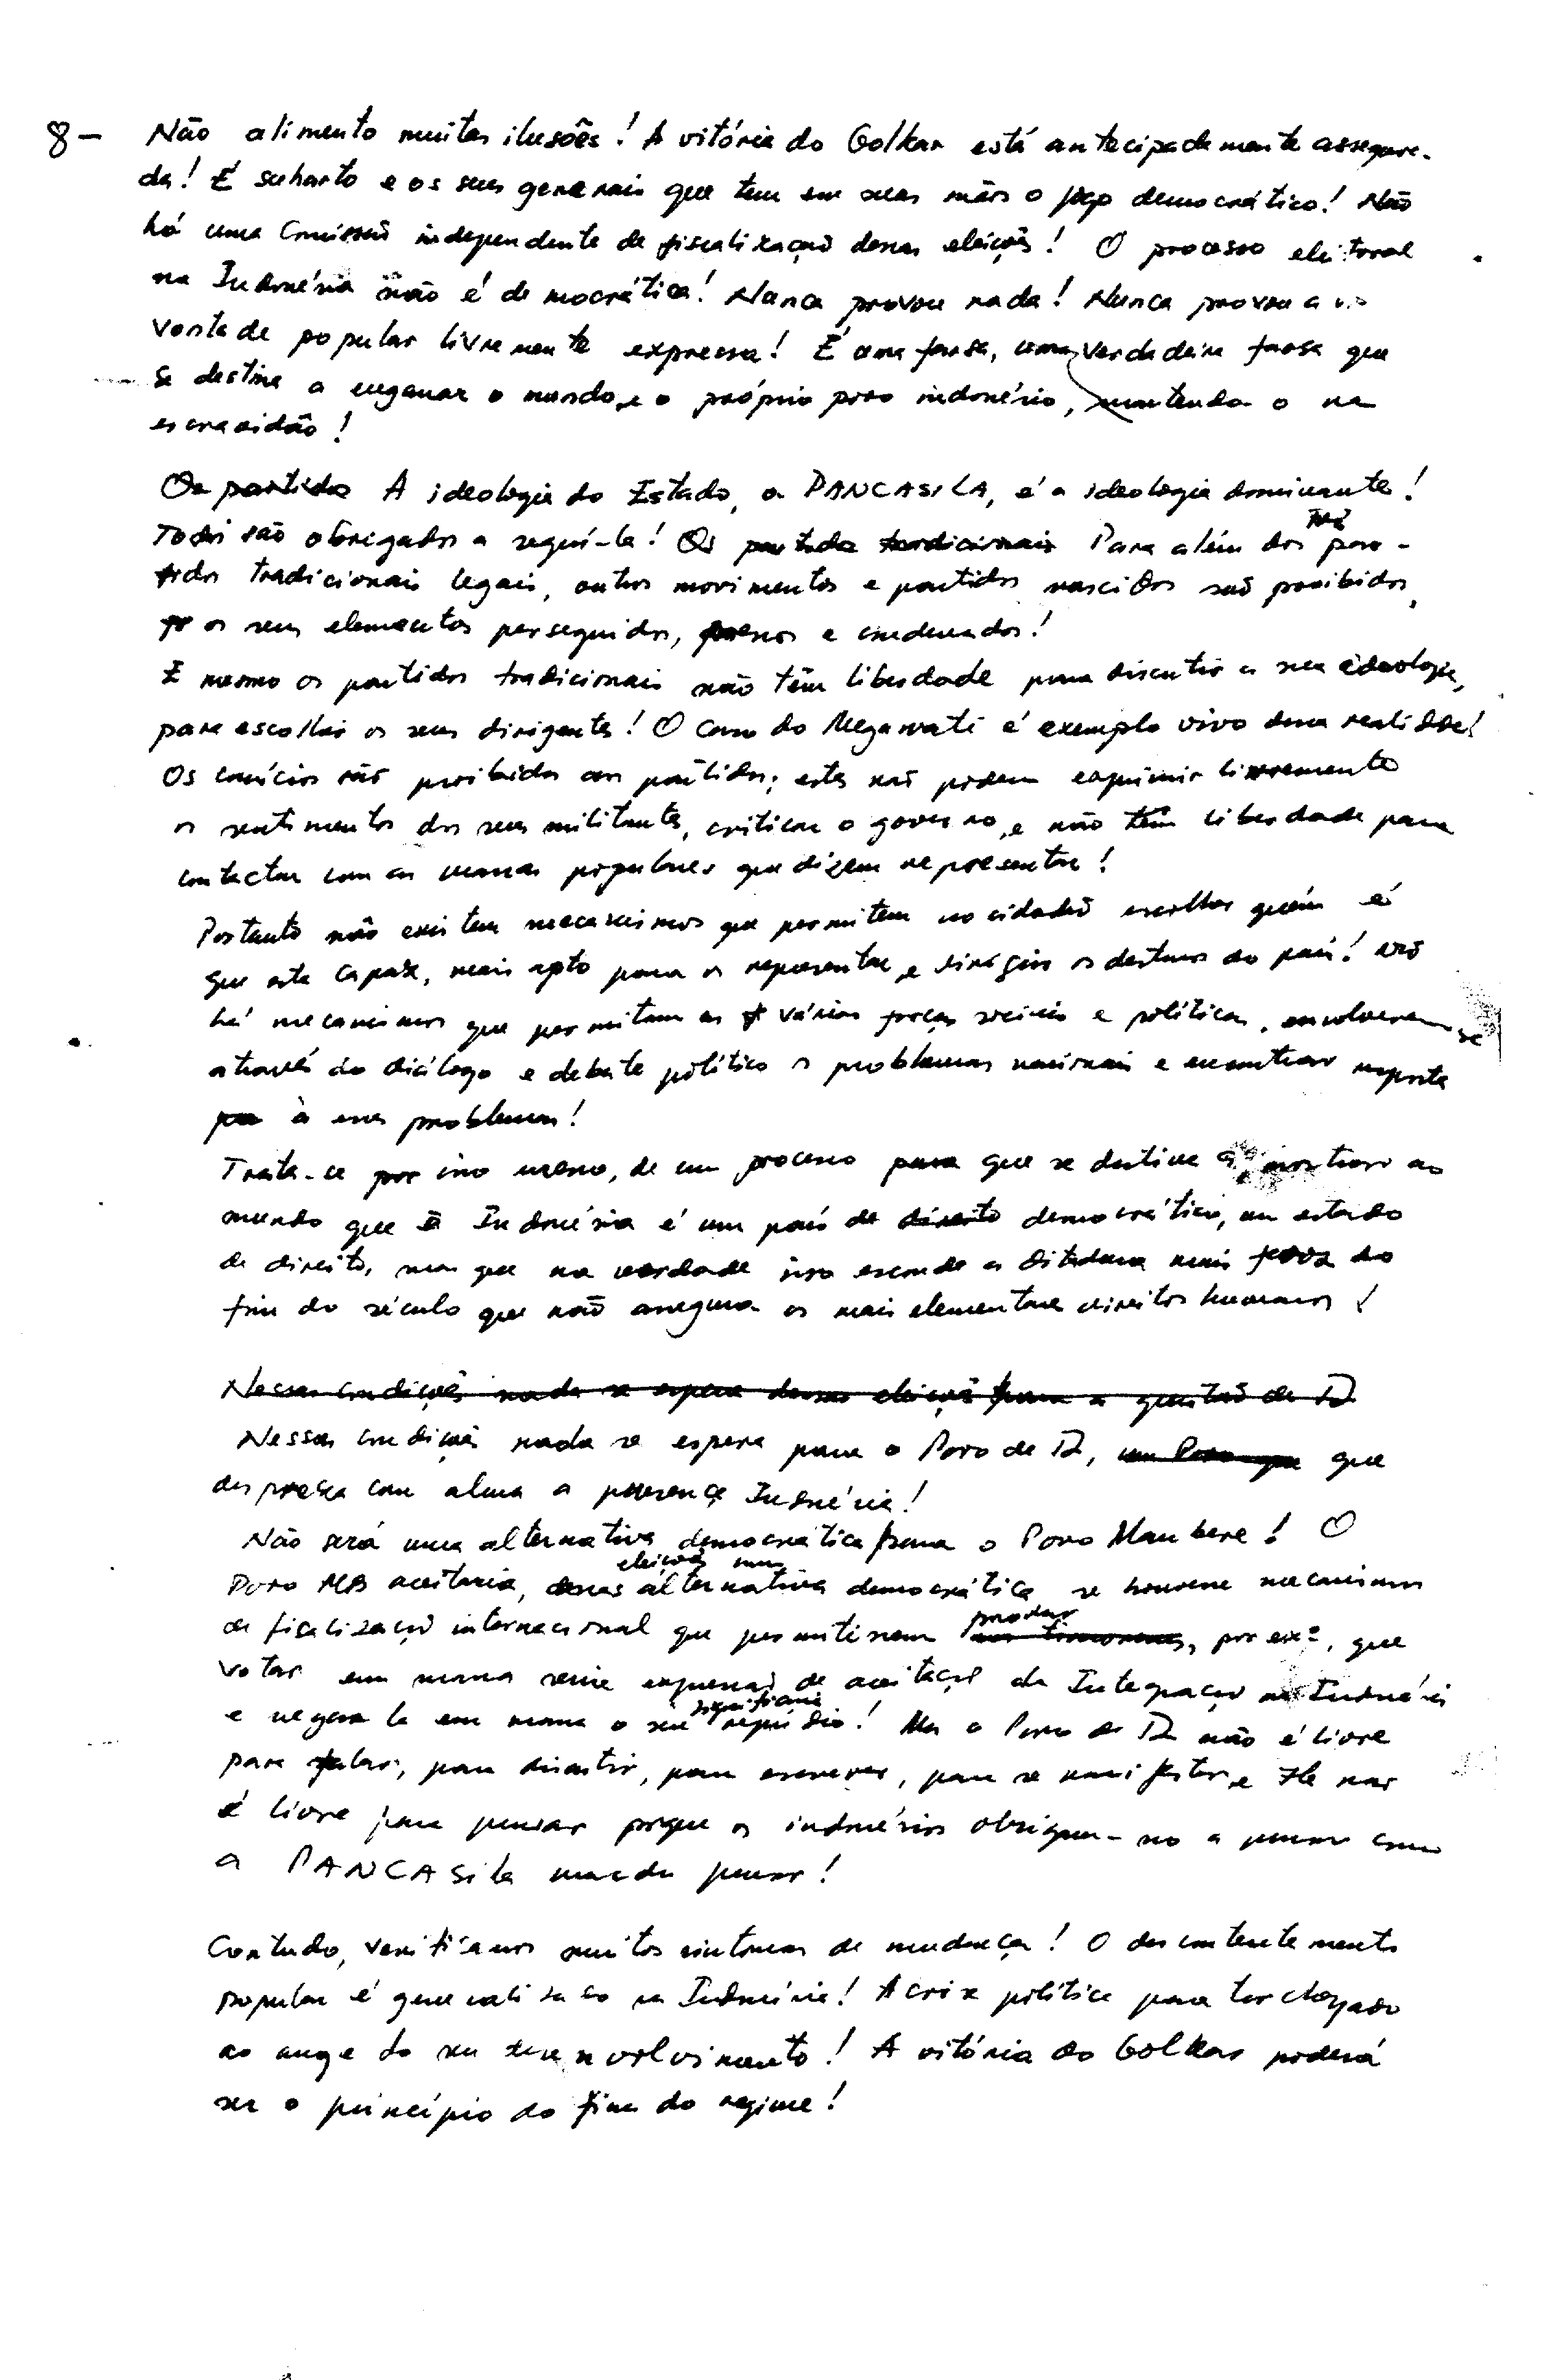 8- Não alimento muitas ilusões! A vitória do Golkar está antecipadamente assegura-
da! É Suharto e os seus generais que tem em suas mãos o jogo democrático! Não
há uma Comissão independente de fiscalização dessas eleições! O processo eleitoral
na Indonésia não é democrática! Nunca provou nada! Nunca provou a
vontade popular livremente expressa! É uma farsa, uma verdadeira farsa que
se destina a enganar o mundo, e o próprio povo indonésio, mantendo o na
escravidão!
Os partidos A ideologia do Estado, a PANCASILA, é a ideologia dominante!
Todos são obrigados a seguí-la! Os partidos tradicionais Para além dos três par-
tidos tradicionais legais, outros movimentos e partidos nascidos são proibidos,
os seus elementos perseguidos, presos e condenados!
E mesmo os partidos tradicionais não têm liberdade para discutir a sua ideologia,
para escolher os seus dirigentes! O caso do Megawati é exemplo vivo dessa realidade!
Os comícios são proibidos aos partidos; estes não podem exprimir livremente
os sentimentos dos seus militantes, criticar o governo, e não têm liberdade para
contactar com as massas populares que dizem representar!
Portanto não existem mecanismos que permitem ao cidadão escolher quém é
que este capaz, mais apto para os representar, e dirigir os destinos do país! Não
há mecanismos que permitam as várias forças sociais e políticas, envolverem-se
através do diálogo e debate político os problemas nacionais e encontrar resposta
à esses problemas!
Trata-se por isso mesmo, de um processo para que se destina a mostrar ao
mundo que a Indonésia é um país de direito democrático, um estado
de direito, mas que na verdade isso esconde a ditadura mais feroz do
fim do século que não assegura os mais elementares direitos humanos!
Nessas condições nada se espera dessas eleições para a questão de TL
Nessas condições nada se espera para o Povo de TL, um Povo que que
despreza com alma a presença Indonésia!
Não será uma alternativa democrática para o Povo Maubere! O
Povo MB aceitaria, dessas eleições uma alternativa democrática se houvesse mecanismos
de fiscalização internacional que permitissem provar, por exº, que
votar em massa seria expressão de aceitação da Integração na Indonésia
e negá-la em massa o seu significaria repúdio! Mas o Povo de TL não é livre
para falar, para discutir, para escrever, para se manifestar, e Ele não
é livre para pensar porque os indonésios obrigam-no a pensar como
a PANCASila manda pensar!
Contudo, verificamos muitos sintomas de mudança! O descontentamento
popular é generalizado na Indonésia! A crise política para ter chegado
ao auge do seu desenvolvimento! A vitória do Golkar poderá
ser o princípio do fim do regime!